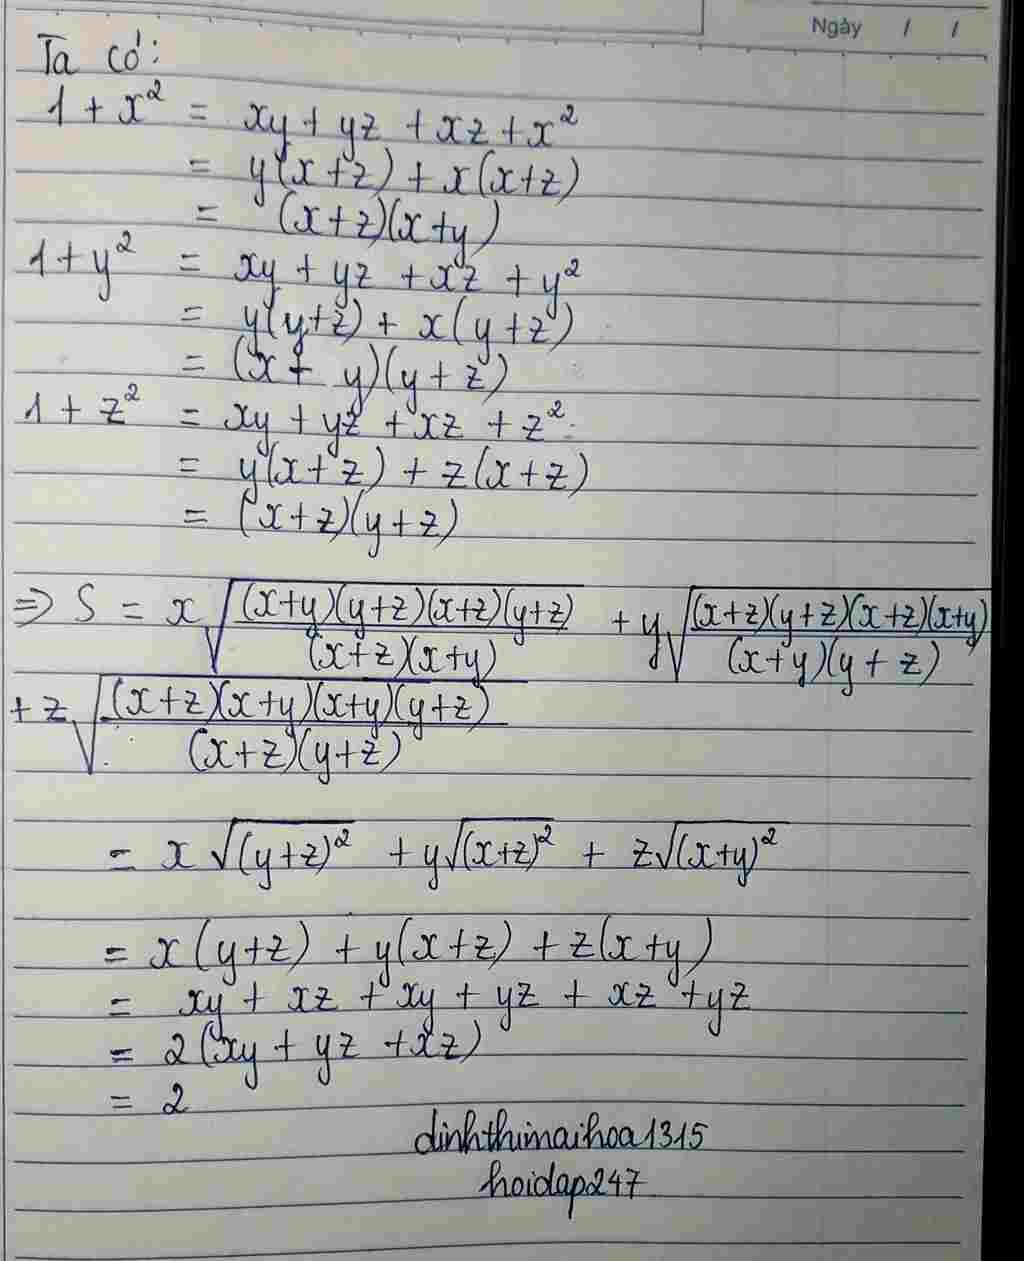 Ngày / /
Ta có:
1 + x² = xy + yz + xz + x²
= y(x+z) + x(x+z)
= (x+z)(x+y)
1 + y² = xy + yz + xz + y²
= y(y+z) + x(y+z)
= (x + y)(y + z)
1 + z² = xy + yz + xz + z²
= y(x+z) + z(x+z)
= (x+z)(y+z)
=> S = x√((x+y)(y+z)(x+z)(y+z)/(x+z)(x+y)) + y√((x+z)(y+z)(x+z)(x+y)/(x+y)(y+z))
+ z√((x+z)(x+y)(x+y)(y+z)/(x+z)(y+z))
= x√(y+z)² + y√(x+z)² + z√(x+y)²
= x(y+z) + y(x+z) + z(x+y)
= xy + xz + xy + yz + xz + yz
= 2(xy + yz + xz)
= 2
dinhthimaihoa1315
hoidap247